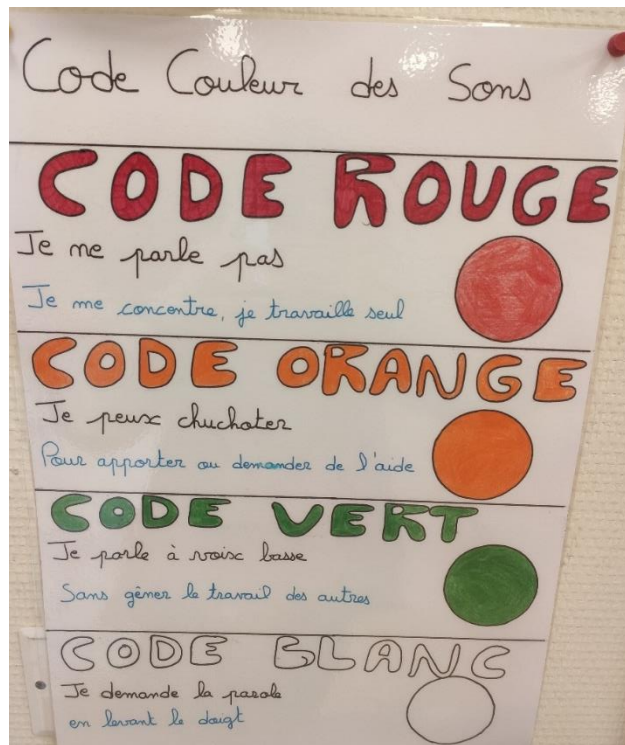 Code Couleur des Sons
CODE ROUGE
Je ne parle pas
Je me concentre, je travaille seul
CODE ORANGE
Je peux chuchoter
Pour apporter ou demander de l'aide
CODE VERT
Je parle à voix basse
Sans gêner le travail des autres
CODE BLANC
Je demande la parole
en levant le doigt